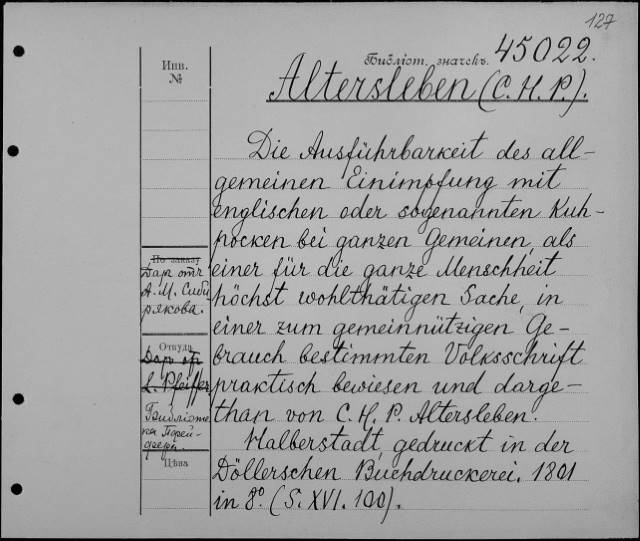 127
Библіот. значекъ. 45022.
Инв.
№
Altersleben (C. H. P.).
Die Ausführbarkeit des all-
gemeinen Einimpfung mit
englischen oder sogenannten Kuh-
pocken bei ganzen Gemeinen, als
einer für die ganze Menschheit
höchst wohlthätigen Sache, in
einer zum gemeinnützigen Ge-
brauch bestimmten Volksschrift
praktisch bewiesen und darge-
than von C. H. P. Altersleben.
Halberstadt, gedruckt in der
Döllerschen Buchdruckerei. 1801
in 8° (S. XVI. 100).
По заказу
Даръ отъ
А. М. Сиби
рякова.
Откуда
Даръ от
L. Pfeiffer
Библіоте
ка Пфей-
фера.
Цѣна